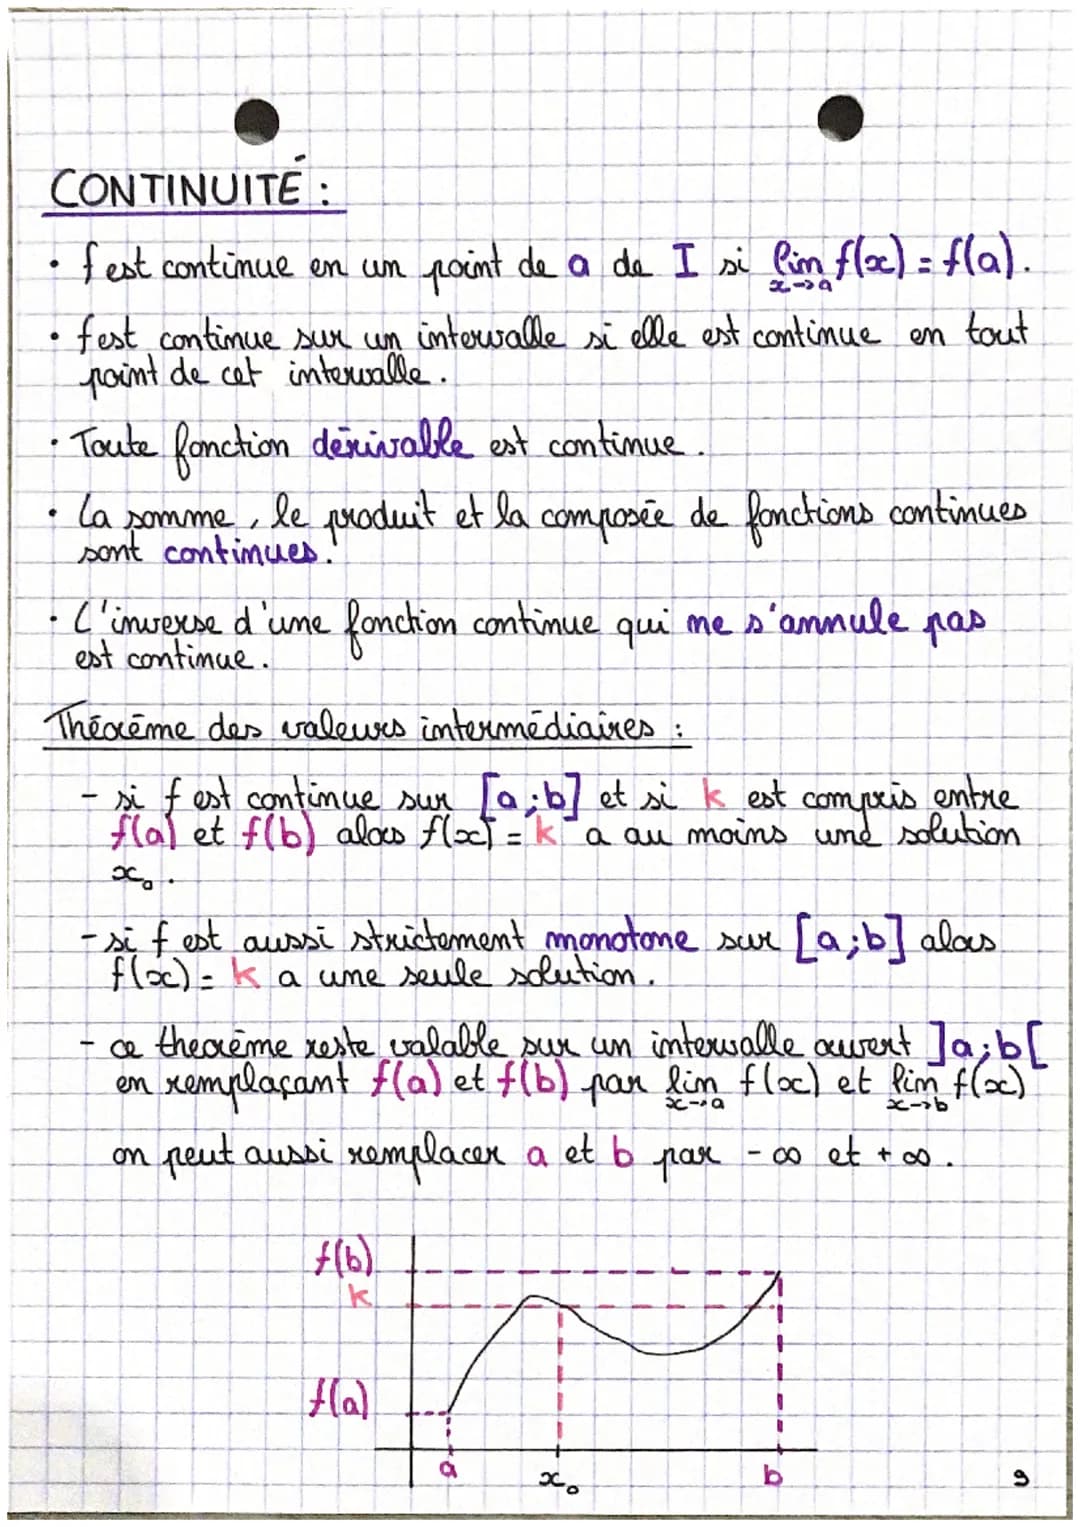 CONTINUITÉ :
• f est continue en un point de a de I si lim f(x) = f(a).
x→a
• f est continue sur un intervalle si elle est continue en tout
point de cet intervalle.
• Toute fonction dérivable est continue.
• La somme, le produit et la composée de fonctions continues
sont continues.
• L'inverse d'une fonction continue qui ne s'annule pas
est continue.
Théorème des valeurs intermédiaires :
- si f est continue sur [a;b] et si k est compris entre
f(a) et f(b) alors f(x) = k a au moins une solution
x₀.
- si f est aussi strictement monotone sur [a;b] alors
f(x) = k a une seule solution.
- ce theorème reste valable sur un intervalle ouvert ]a;b[
en remplaçant f(a) et f(b) par lim f(x) et lim f(x)
x→a x→b
on peut aussi remplacer a et b par -∞ et +∞.
f(b)
k
f(a)
a x₀ b
9